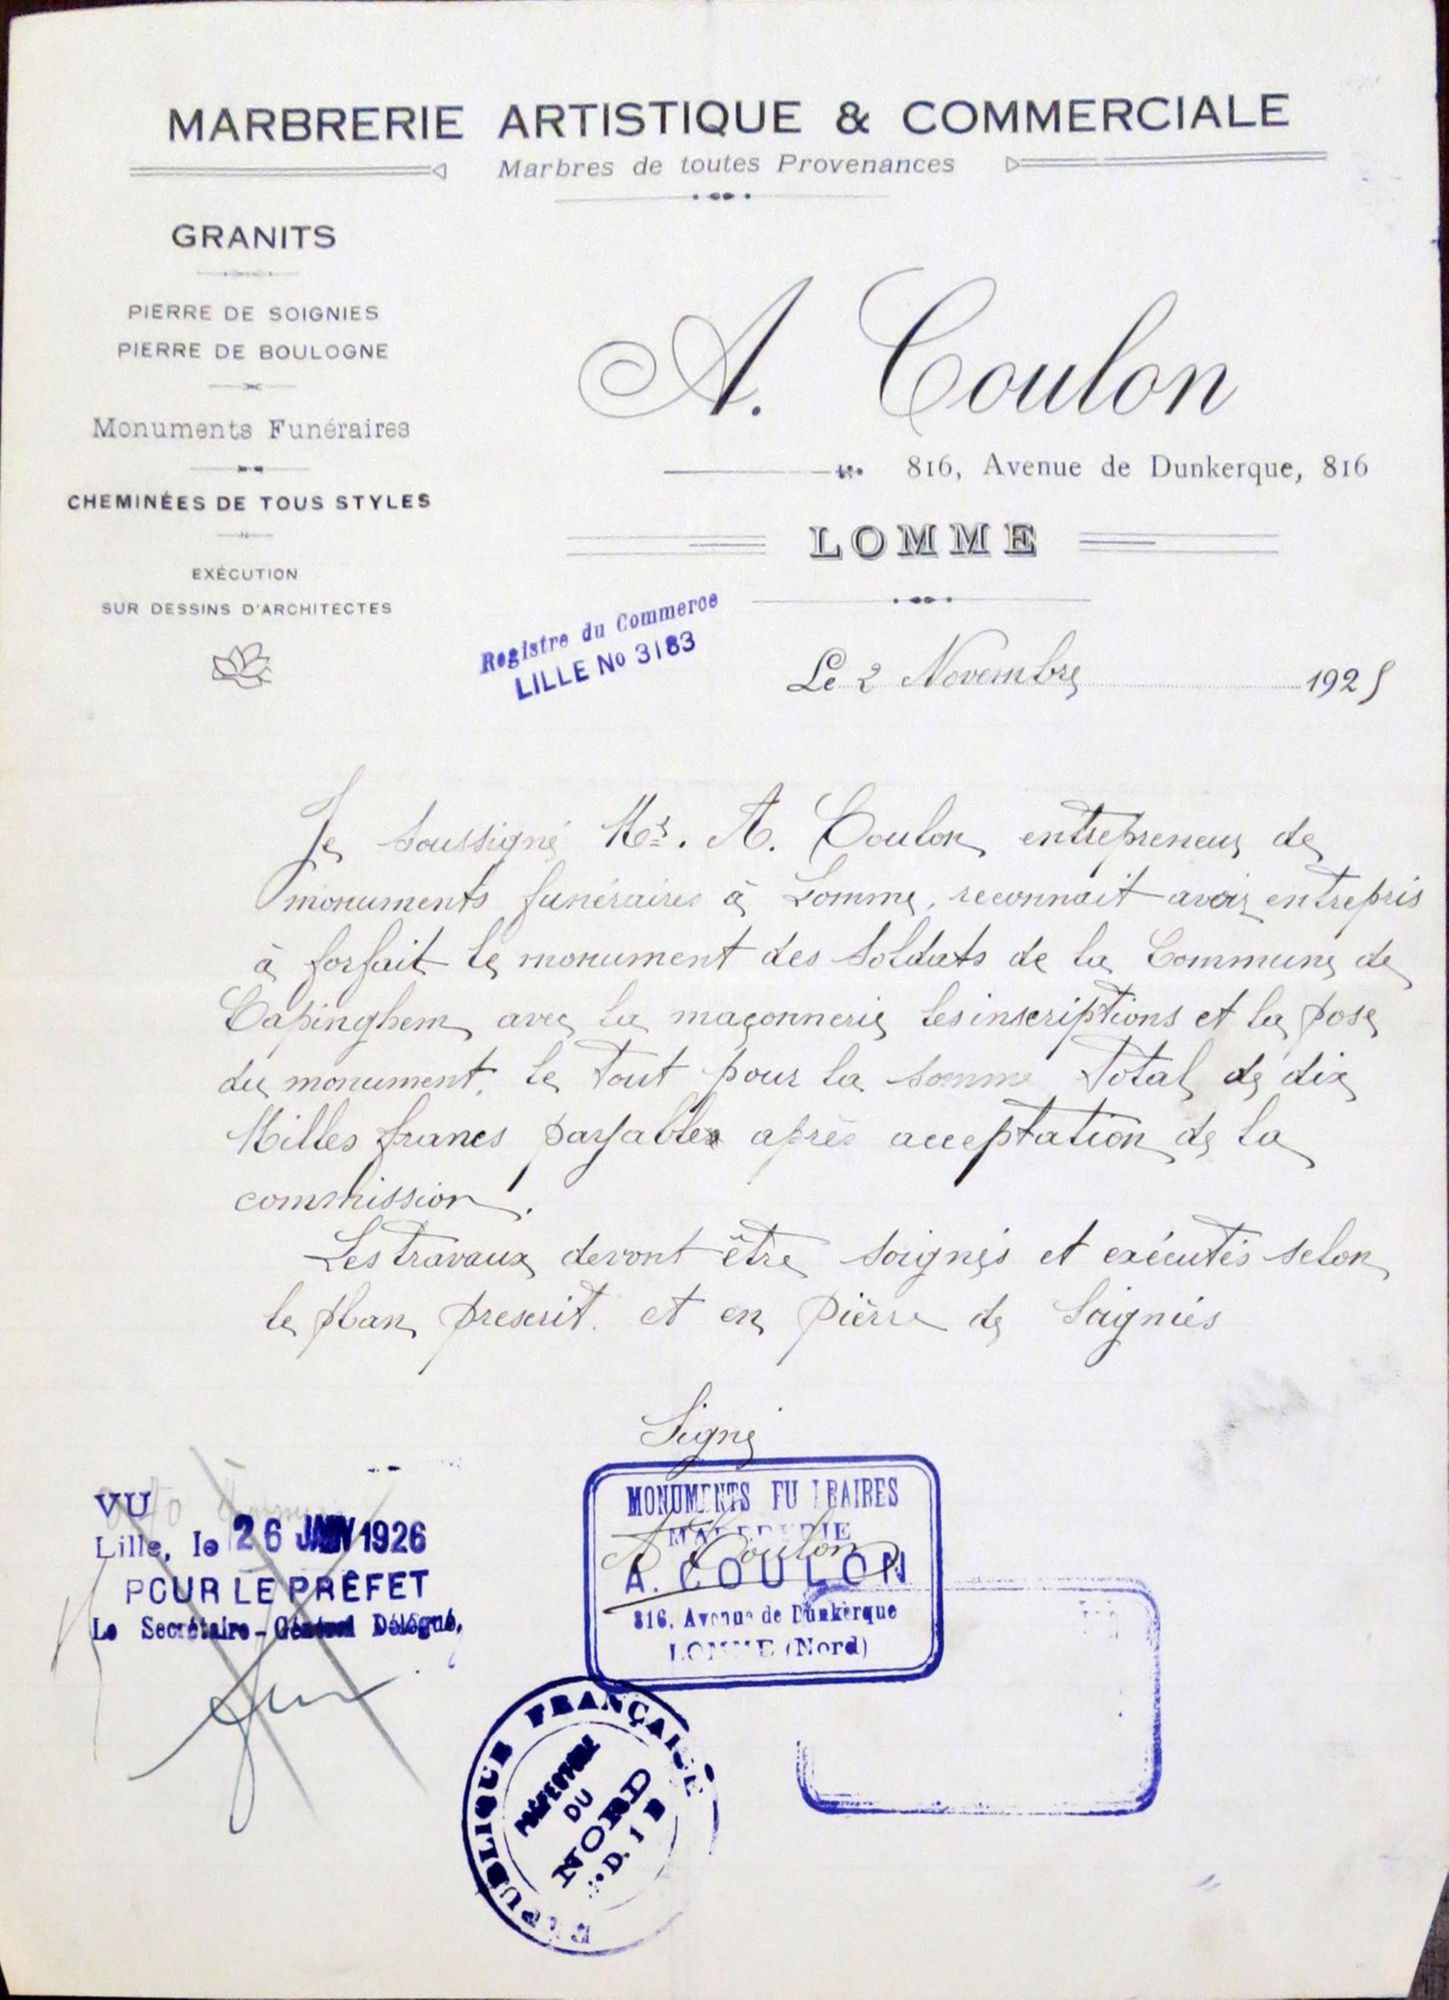 MARBRERIE ARTISTIQUE & COMMERCIALE
Marbres de toutes Provenances
GRANITS
PIERRE DE SOIGNIES
PIERRE DE BOULOGNE
Monuments Funéraires
CHEMINÉES DE TOUS STYLES
EXÉCUTION
SUR DESSINS D'ARCHITECTES
A. Coulon
816, Avenue de Dunkerque, 816
LOMME
Registre du Commerce
LILLE No 3183
Le 2 Novembre 1925
Je soussigné Mr. A. Coulon entrepreneur de
monuments funéraires à Lomme, reconnait avoir entrepris
à forfait le monument des soldats de la Commune de
Capinghem avec la maçonnerie les inscriptions et la pose
du monument. le tout pour la somme total de dix
Milles francs payables après acceptation de la
commission.
Les travaux devont être soignés et exécutés selon
le plan prescrit. et en pièrre de Soignies
Signé
A Coulon
MONUMENTS FU RAIRES
A. COULON
816, Avenue de Dunkerque
LOMME (Nord)
VU
Lille, le 26 JANV 1926
POUR LE PRÉFET
Le Secrétaire-Général Délégué,
RÉPUBLIQUE FRANÇAISE
PRÉFECTURE
DU
NORD
D. 1 B